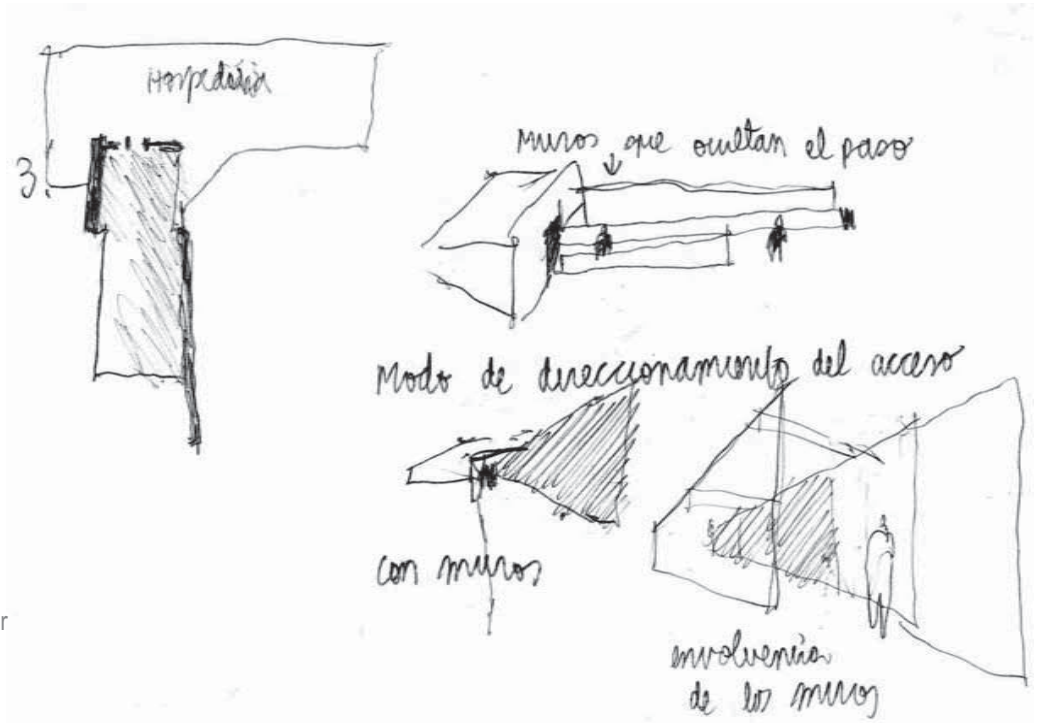 Hospedería
3
muros que ocultan el paso
Modo de direccionamiento del acceso
con muros
r
envolvencia
de los muros